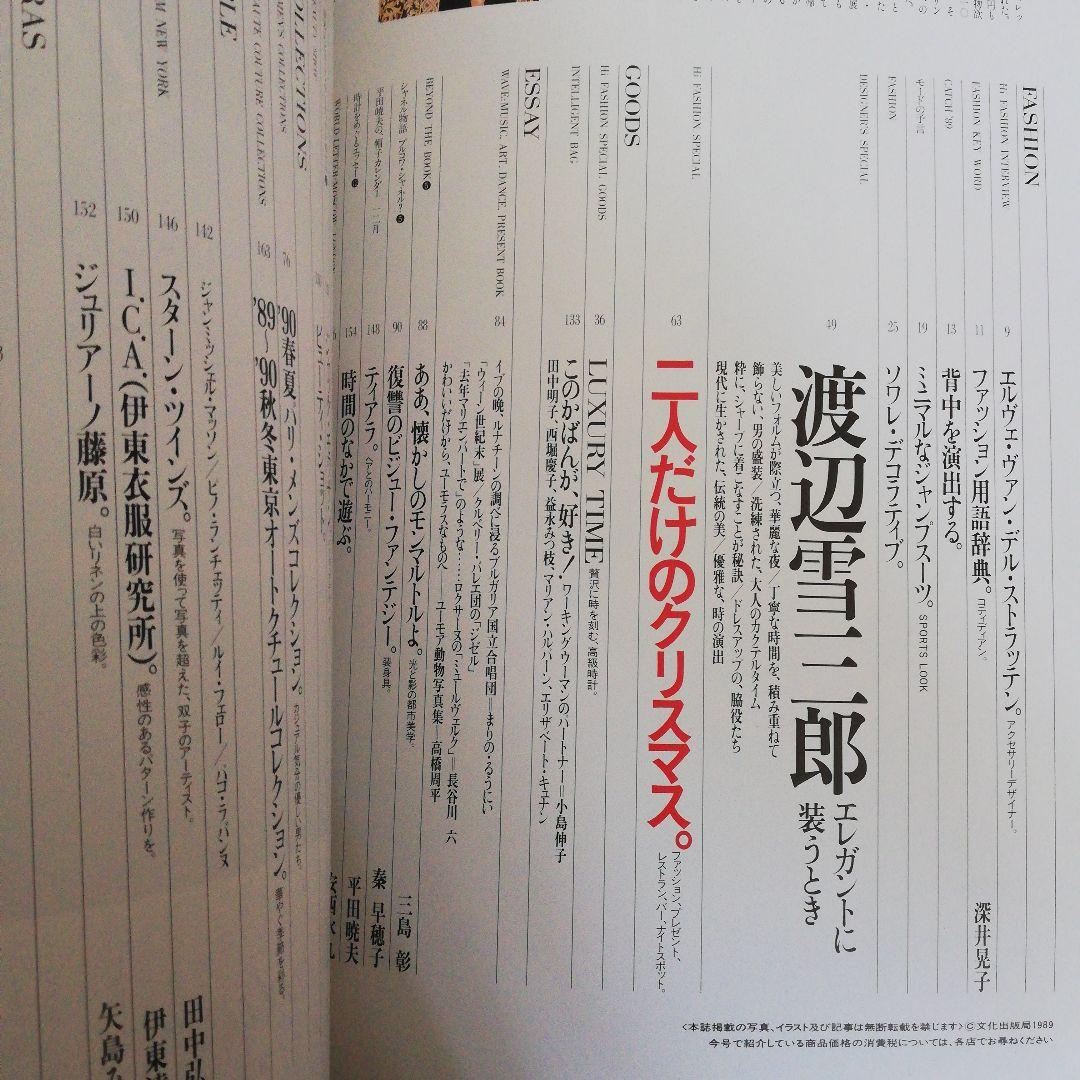 FASHION
Hi FASHION INTERVIEW
9
エルヴェ・ヴァン・デル・ストラッテン。アクセサリーデザイナー。
FASHION KEY WORD
11
ファッション用語辞典。コティディアン。
深井晃子
CATCH '89
13
背中を演出する。
モードの予言
19
ミニマルなジャンプスーツ。SPORTS LOOK
FASHION
25
ソワレ・デコラティブ。
DESIGNER'S SPECIAL
49
渡辺雪三郎
エレガントに
装うとき
美しいフォルムが際立つ、華麗な夜／丁寧な時間を、積み重ねて
飾らない、男の盛装／洗練された、大人のカクテルタイム
粋に、シャープに着こなすことが秘訣／ドレスアップの、脇役たち
現代に生かされた、伝統の美／優雅な、時の演出
Hi FASHION SPECIAL
63
二人だけのクリスマス。
ファッション、プレゼント、
レストラン、バー、ナイトスポット。
GOODS
Hi FASHION SPECIAL GOODS
36
LUXURY TIME 贅沢に時を刻む、高級時計。
INTELLIGENT BAG
133
このかばんが、好き！ワーキングウーマンのパートナー＝小島伸子
田中明子、西堀慶子、益永みつ枝、マリアン・ハルバーン、エリザベート・キュナン
ESSAY
WAVE:MUSIC, ART, DANCE, PRESENT BOOK
84
イブの晩、ルナチーンの調べに浸るブルガリア国立合唱団＝まりの・るうにい
「ウィーン世紀末」展／クルベリー・バレエ団の「ジゼル」
「去年マリエンバートで」のような……ロクサーヌの「ミュールヴェルク」＝長谷川 六
かわいいだけから、ユーモラスなものへ ユーモア動物写真集＝高橋周平
BEYOND THE BOOK
88
ああ、懐かしのモンマルトルよ。光と影の都市美学。
三島 彰
シャネル物語
90
復讐のビジュー・ファンテジー。装身具。
秦 早穂子
平田暁夫の、帽子カレンダー 十二月
148
ティアラ。
平田暁夫
時計をめぐるエッセー⑫
154
時間のなかで遊ぶ。
76
'90春夏パリ・メンズコレクション。
163
'89〜'90秋冬東京オートクチュールコレクション。
142
ジャン・ミッシェル・マッソン ピノ・ランチェッティ／ルイ・フェロー／パコ・ラバンヌ
146
スターン・ツインズ。写真を使って写真を超えた、双子のアーティスト。
田中弘
150
I.C.A.（伊東衣服研究所）。感性のあるパターン作りを。
伊東
152
ジュリアーノ藤原。白いリネンの上の色彩。
矢島
〈本誌掲載の写真、イラスト及び記事は無断転載を禁じます〉©文化出版局1989
今号で紹介している商品価格の消費税については、各店でお尋ねください